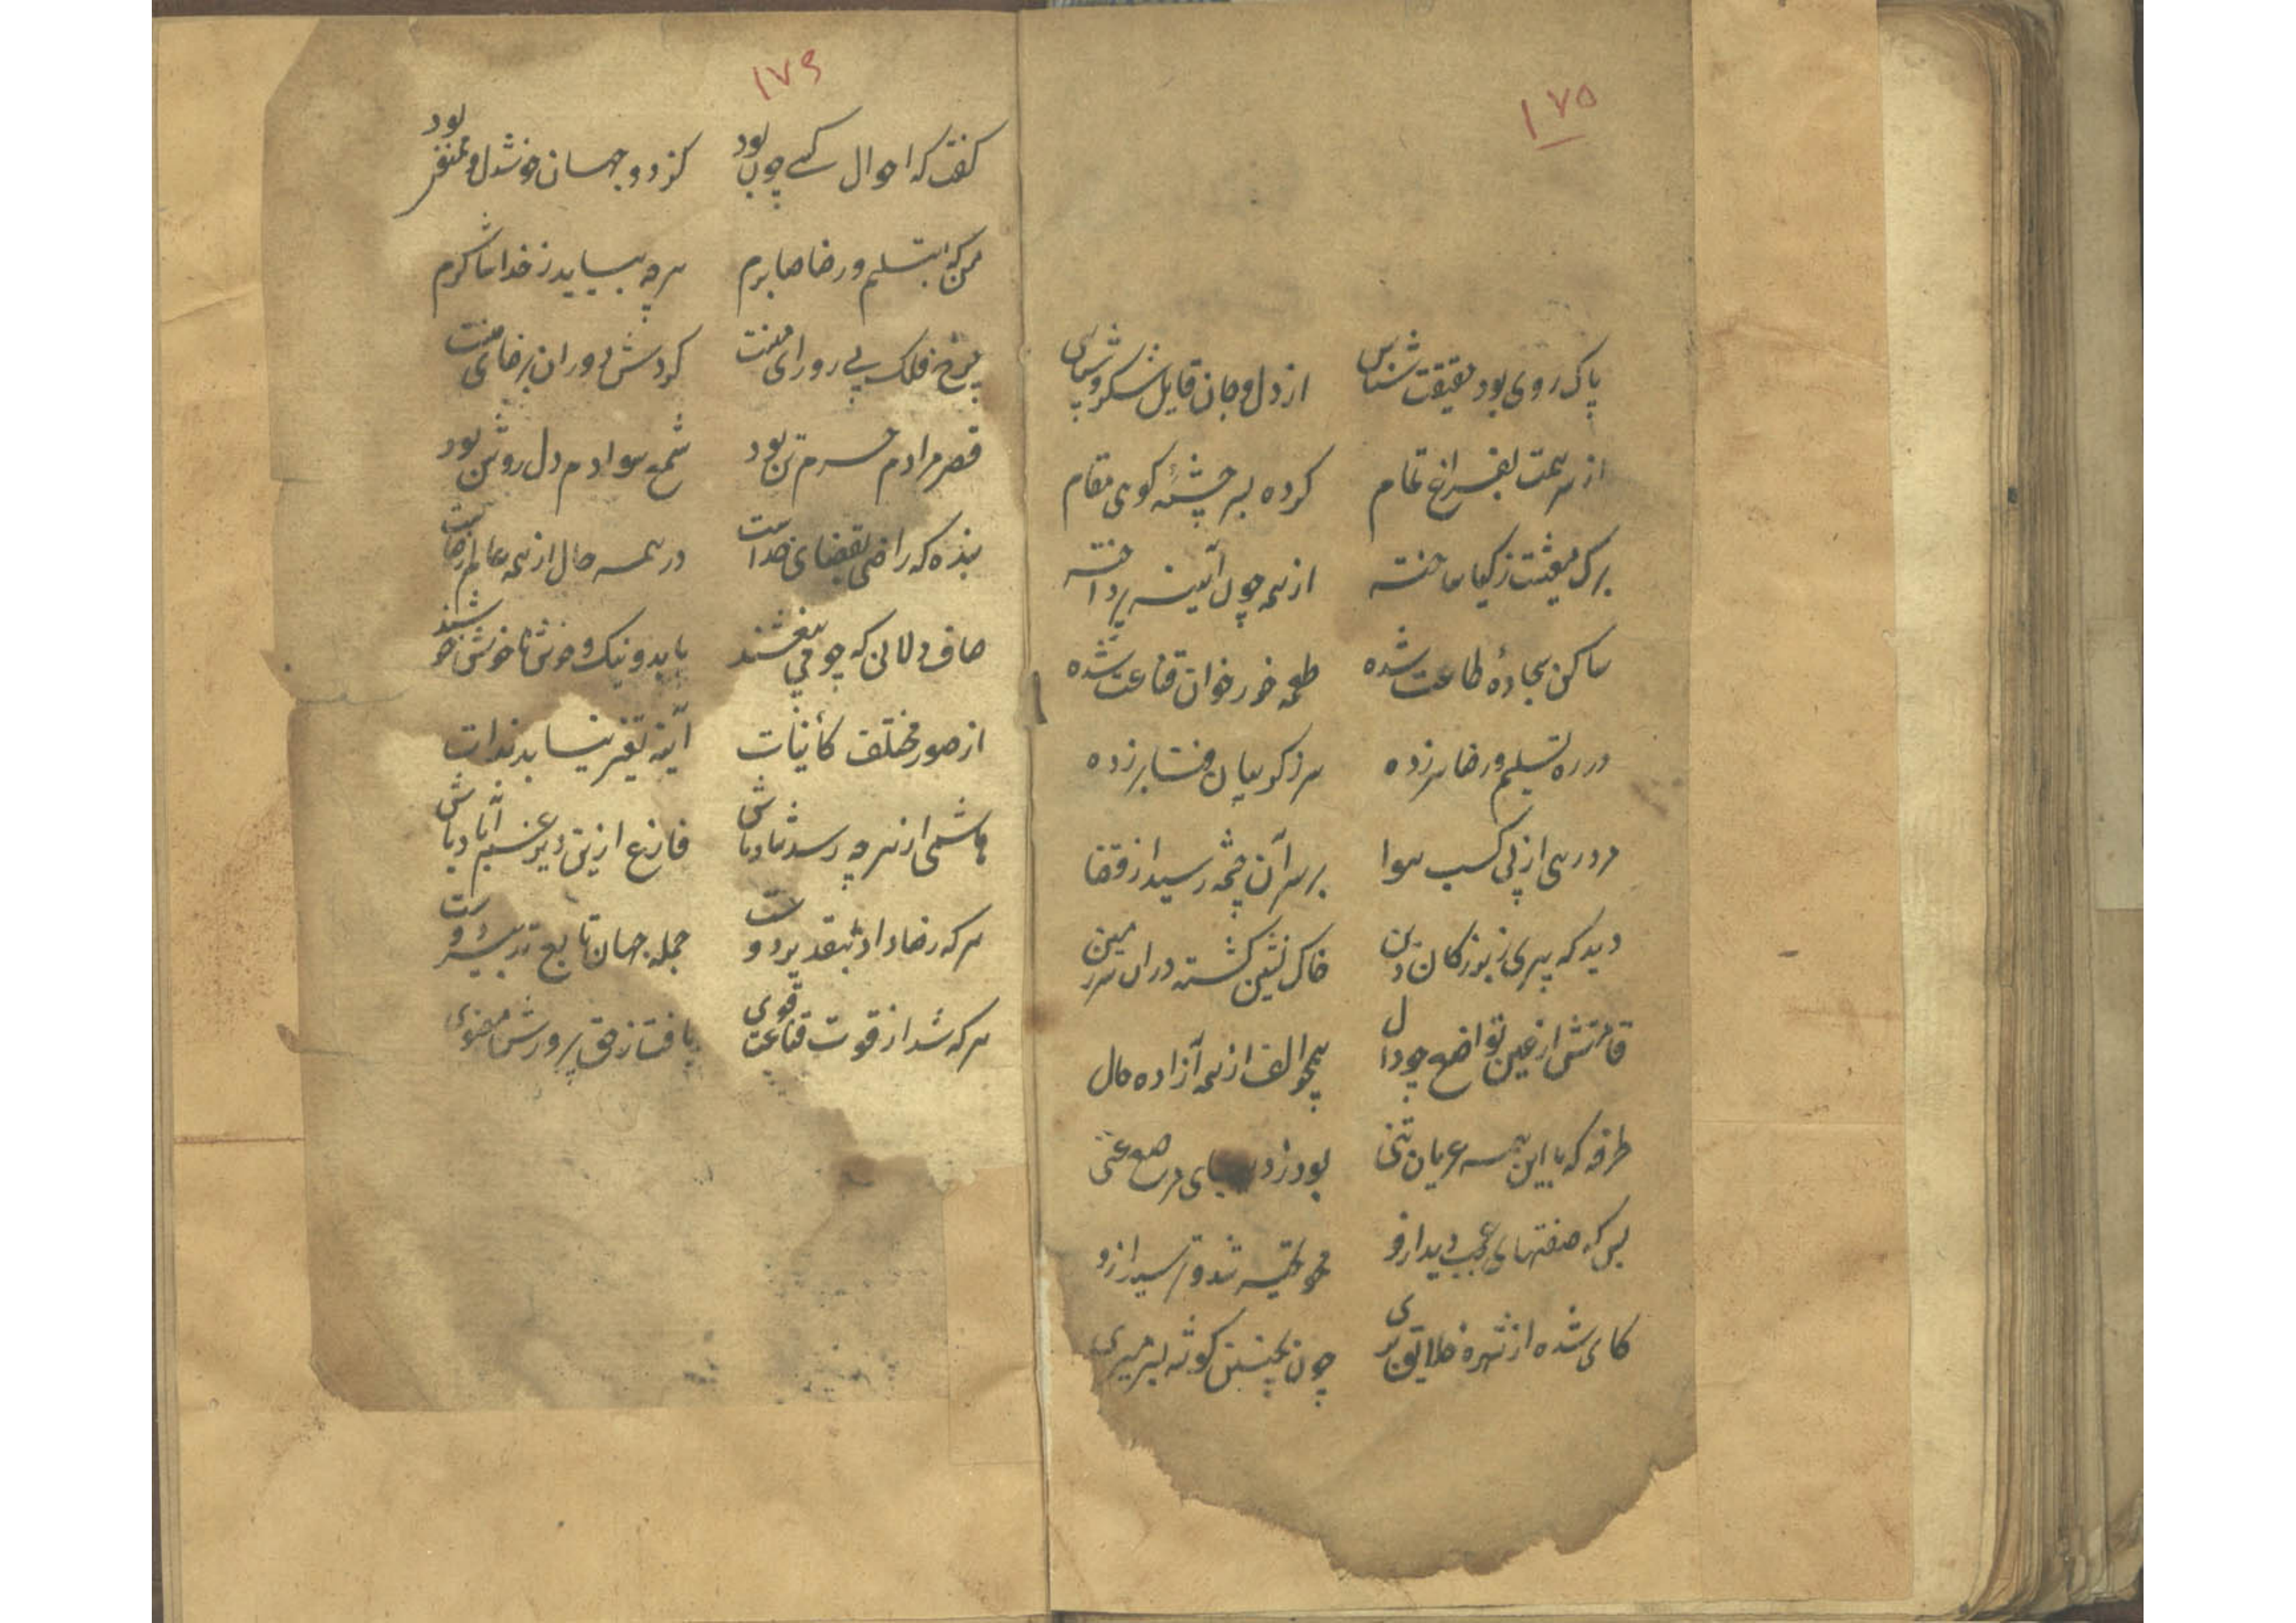 ۱۷۵
پاک روی بود حقیقت شناس از دل و جان قایل شکر و سپاس
از سر همت بفراغ تمام کرده بسر چشمهٔ کوهی مقام
برک معیشت ز کیا ساخته از همه چون آینه پرداخته
ساکن سجادهٔ طاعت شده طعمه خور خوان قناعت شده
در ره تسلیم و رضا سر زده سر ز کریبان فنا بر زده
مرد رهی از پی کسب هوا بر سر آن چشمه رسید از قضا
دید که پیری ز بزرکان دین خاک نشین کشته در آن سرزمین
قامتش از عین تواضع چو دال همچو الف از همه آزاده حال
طرفه که با این همه عریان تنی بود ز مرصع غنی
بس که صفتهای عجب دید ازو محو تحیر شد و ترسید ازو
کای شده از شهره خلایق بری چون بچنین کوشه بسر میبری
۱۷۶
کفت که احوال کسی چون بود کز دو جهان خوشدل و ممنون بود
من که بتسلیم و رضا صابرم هرچه بیاید ز خدا شاکرم
چرخ فلک پی رو رای منست کردش دوران برضای منست
قصر مرادم حرم تن بود شمع سوادم دل روشن بود
بنده که راضی بقضای خداست در همه حال از همه عالم رضاست
صاف دلانی که چو می بیغشند با بد و نیک و خوش و ناخوش خوشند
از صور مختلف کأینات آینه تغیر نیابد بذات
هاشمی از هر چه رسد شاد باش فارغ ازین دیر غم آباد باش
هر که رضا داد بتقدیر دوست جمله جهان تابع تدبیر اوست
هر که شد از قوت قناعت قوی یافت ز حق پرورش معنوی